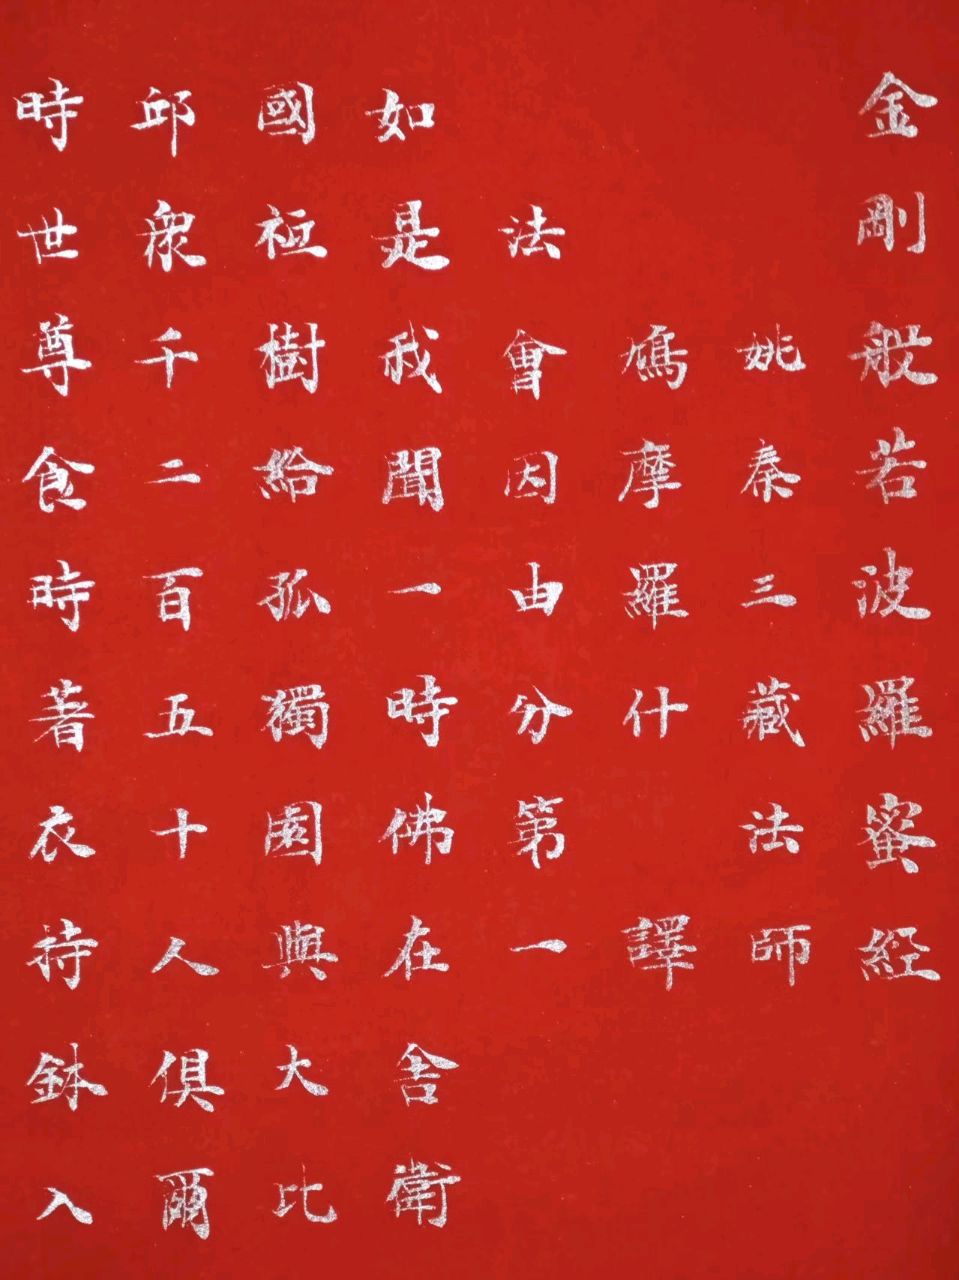 金剛般若波羅蜜經
姚秦三藏法師
鳩摩羅什譯
法會因由分第一
如是我聞一時佛在舍衛
國祗樹給孤獨園與大比
邱衆千二百五十人俱爾
時世尊食時著衣持鉢入